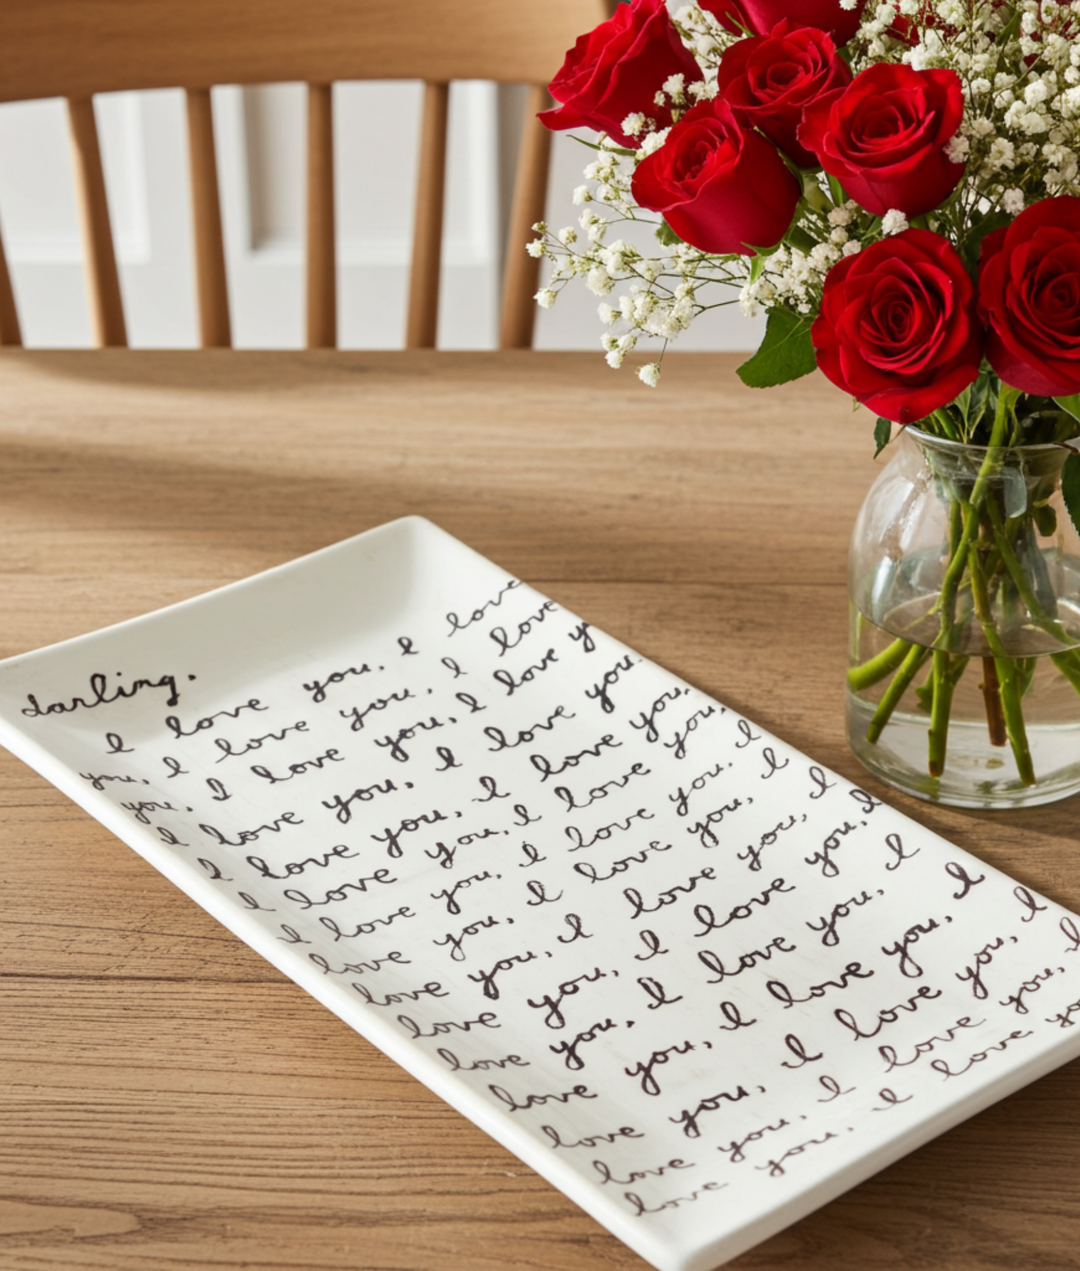 darling.
I love you, I love
you, I love you, I love
you, I love you, I love y
I love you, I love you,
I love you, I love you,
I love you, I love you,
I love you, I love you, I
love you, I love you, I
love you, I love you, I
love you, I love you, I
love you, I love you, I
love you, I love you, I
love you, I love you, I
love you, I love you, I
love you, I love yo